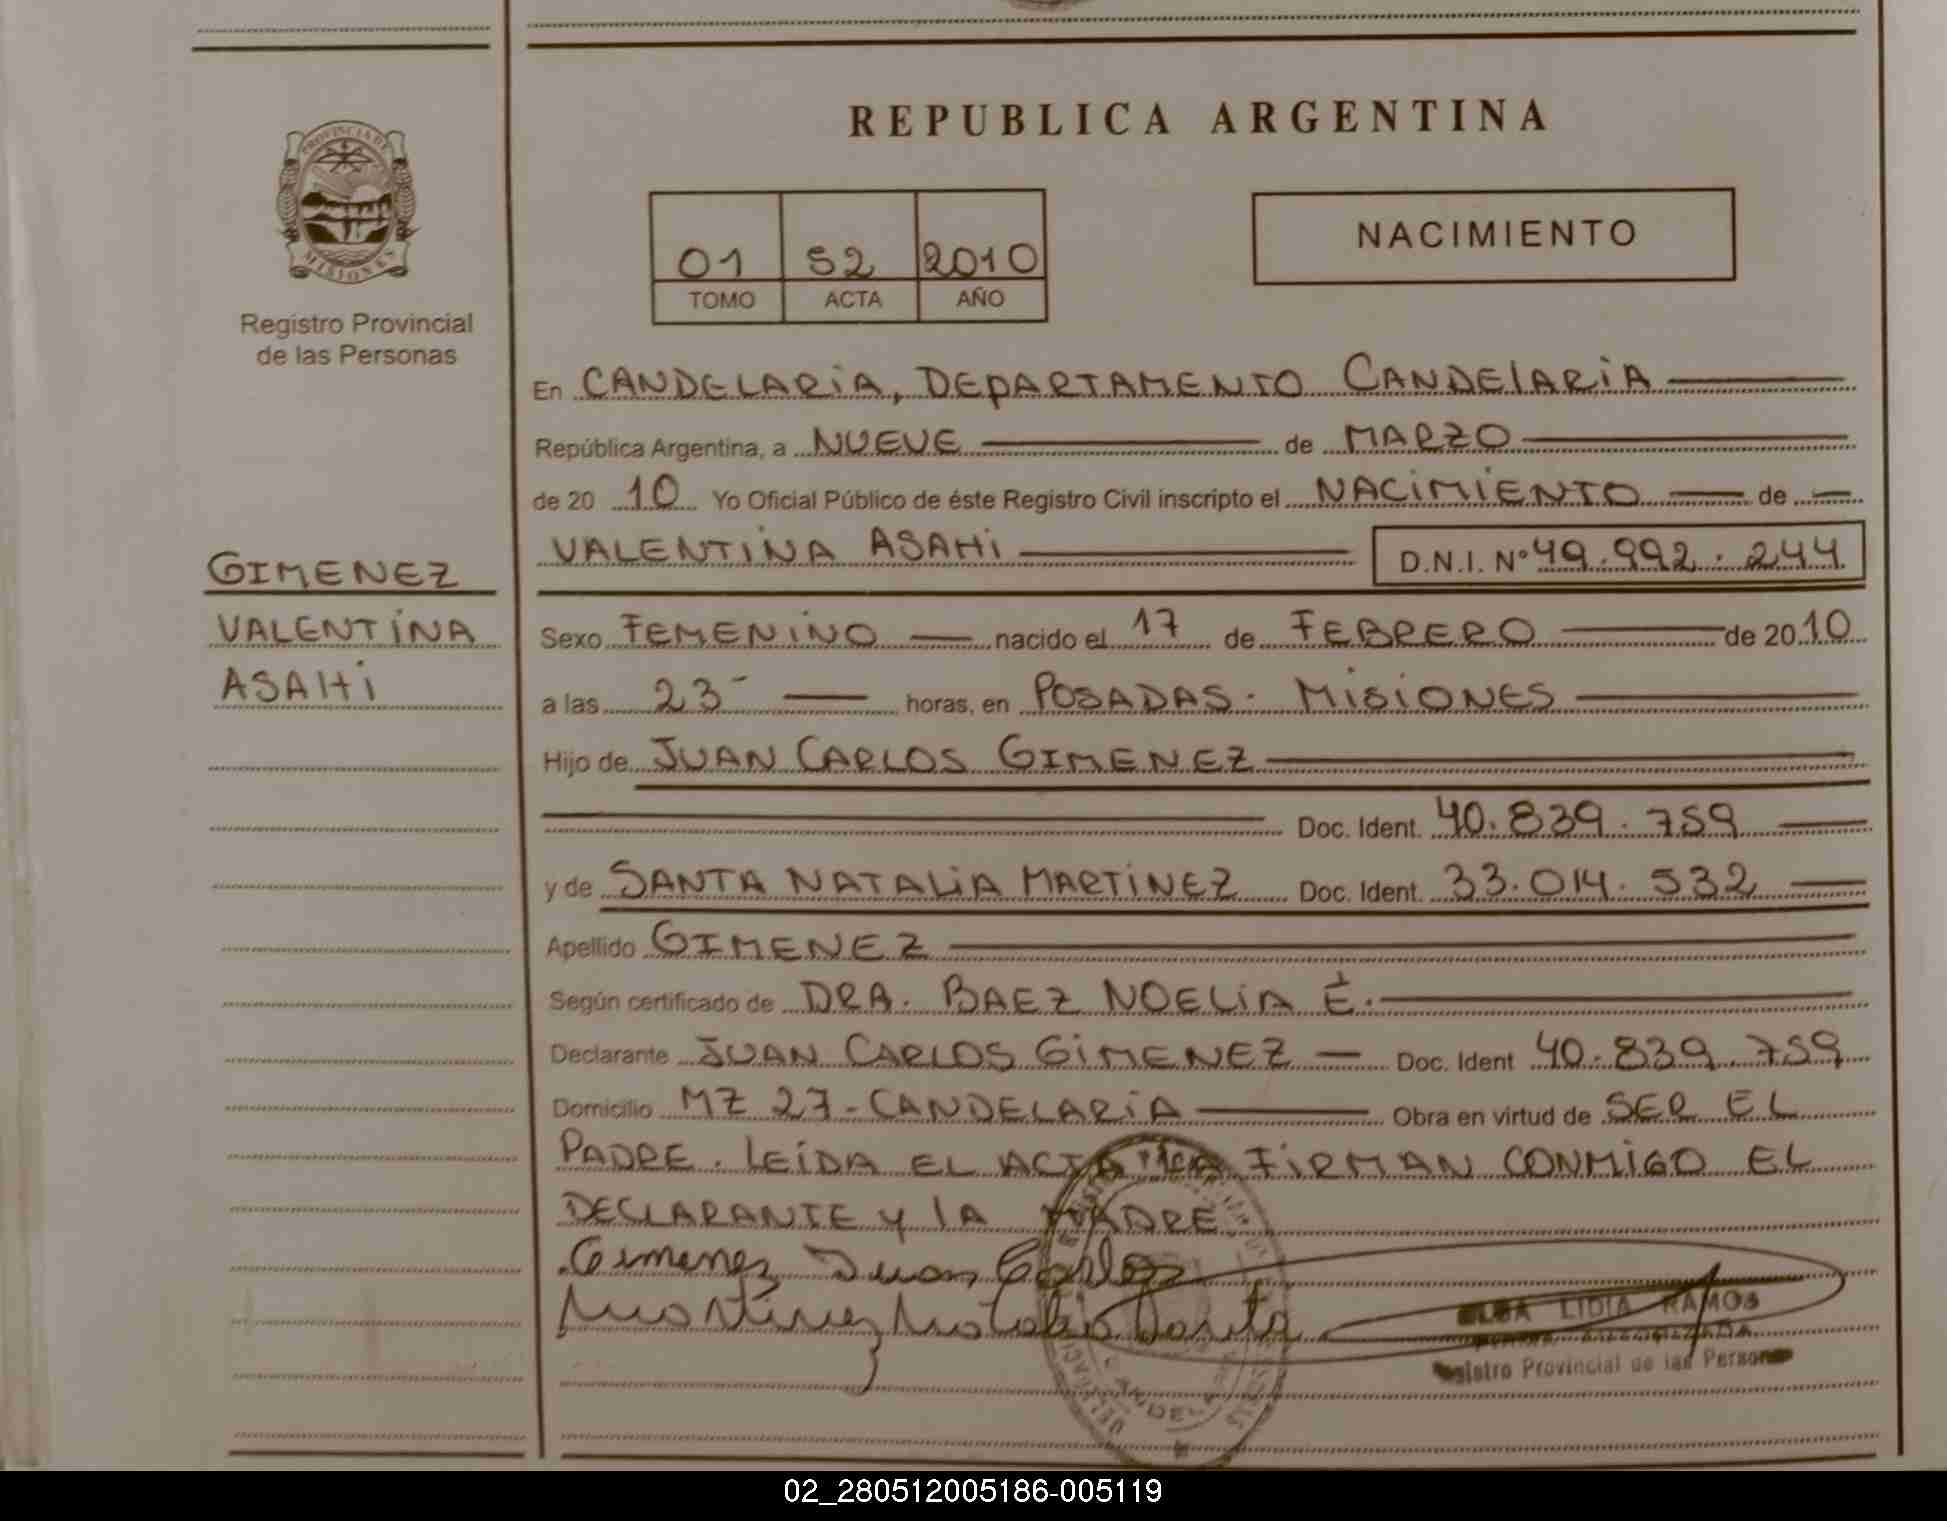 PROVINCIA DE
MISIONES
Registro Provincial
de las Personas
GIMENEZ
VALENTINA
ASAHI
REPUBLICA ARGENTINA
01 52 2010
TOMO ACTA AÑO
NACIMIENTO
En CANDELARIA, DEPARTAMENTO CANDELARIA
República Argentina, a NUEVE de MARZO
de 20 10 Yo Oficial Público de éste Registro Civil inscripto el NACIMIENTO de
VALENTINA ASAHI D.N.I. Nº 49.992.244
Sexo FEMENINO nacido el 17 de FEBRERO de 20 10
a las 23 horas, en POSADAS - MISIONES
Hijo de JUAN CARLOS GIMENEZ
Doc. Ident. 40.839.759
y de SANTA NATALIA MARTINEZ Doc. Ident. 33.014.532
Apellido GIMENEZ
Según certificado de DRA. BAEZ NOELIA E.
Declarante JUAN CARLOS GIMENEZ Doc. Ident 40.839.759
Domicilio MZ 27 - CANDELARIA Obra en virtud de SER EL
PADRE. LEIDA EL ACTA LA FIRMAN CONMIGO EL
DECLARANTE Y LA MADRE
Gimenez Juan Carlos
Martinez Natalia Santa
ELBA LIDIA RAMOS
Registro Provincial de las Personas
02_280512005186-005119